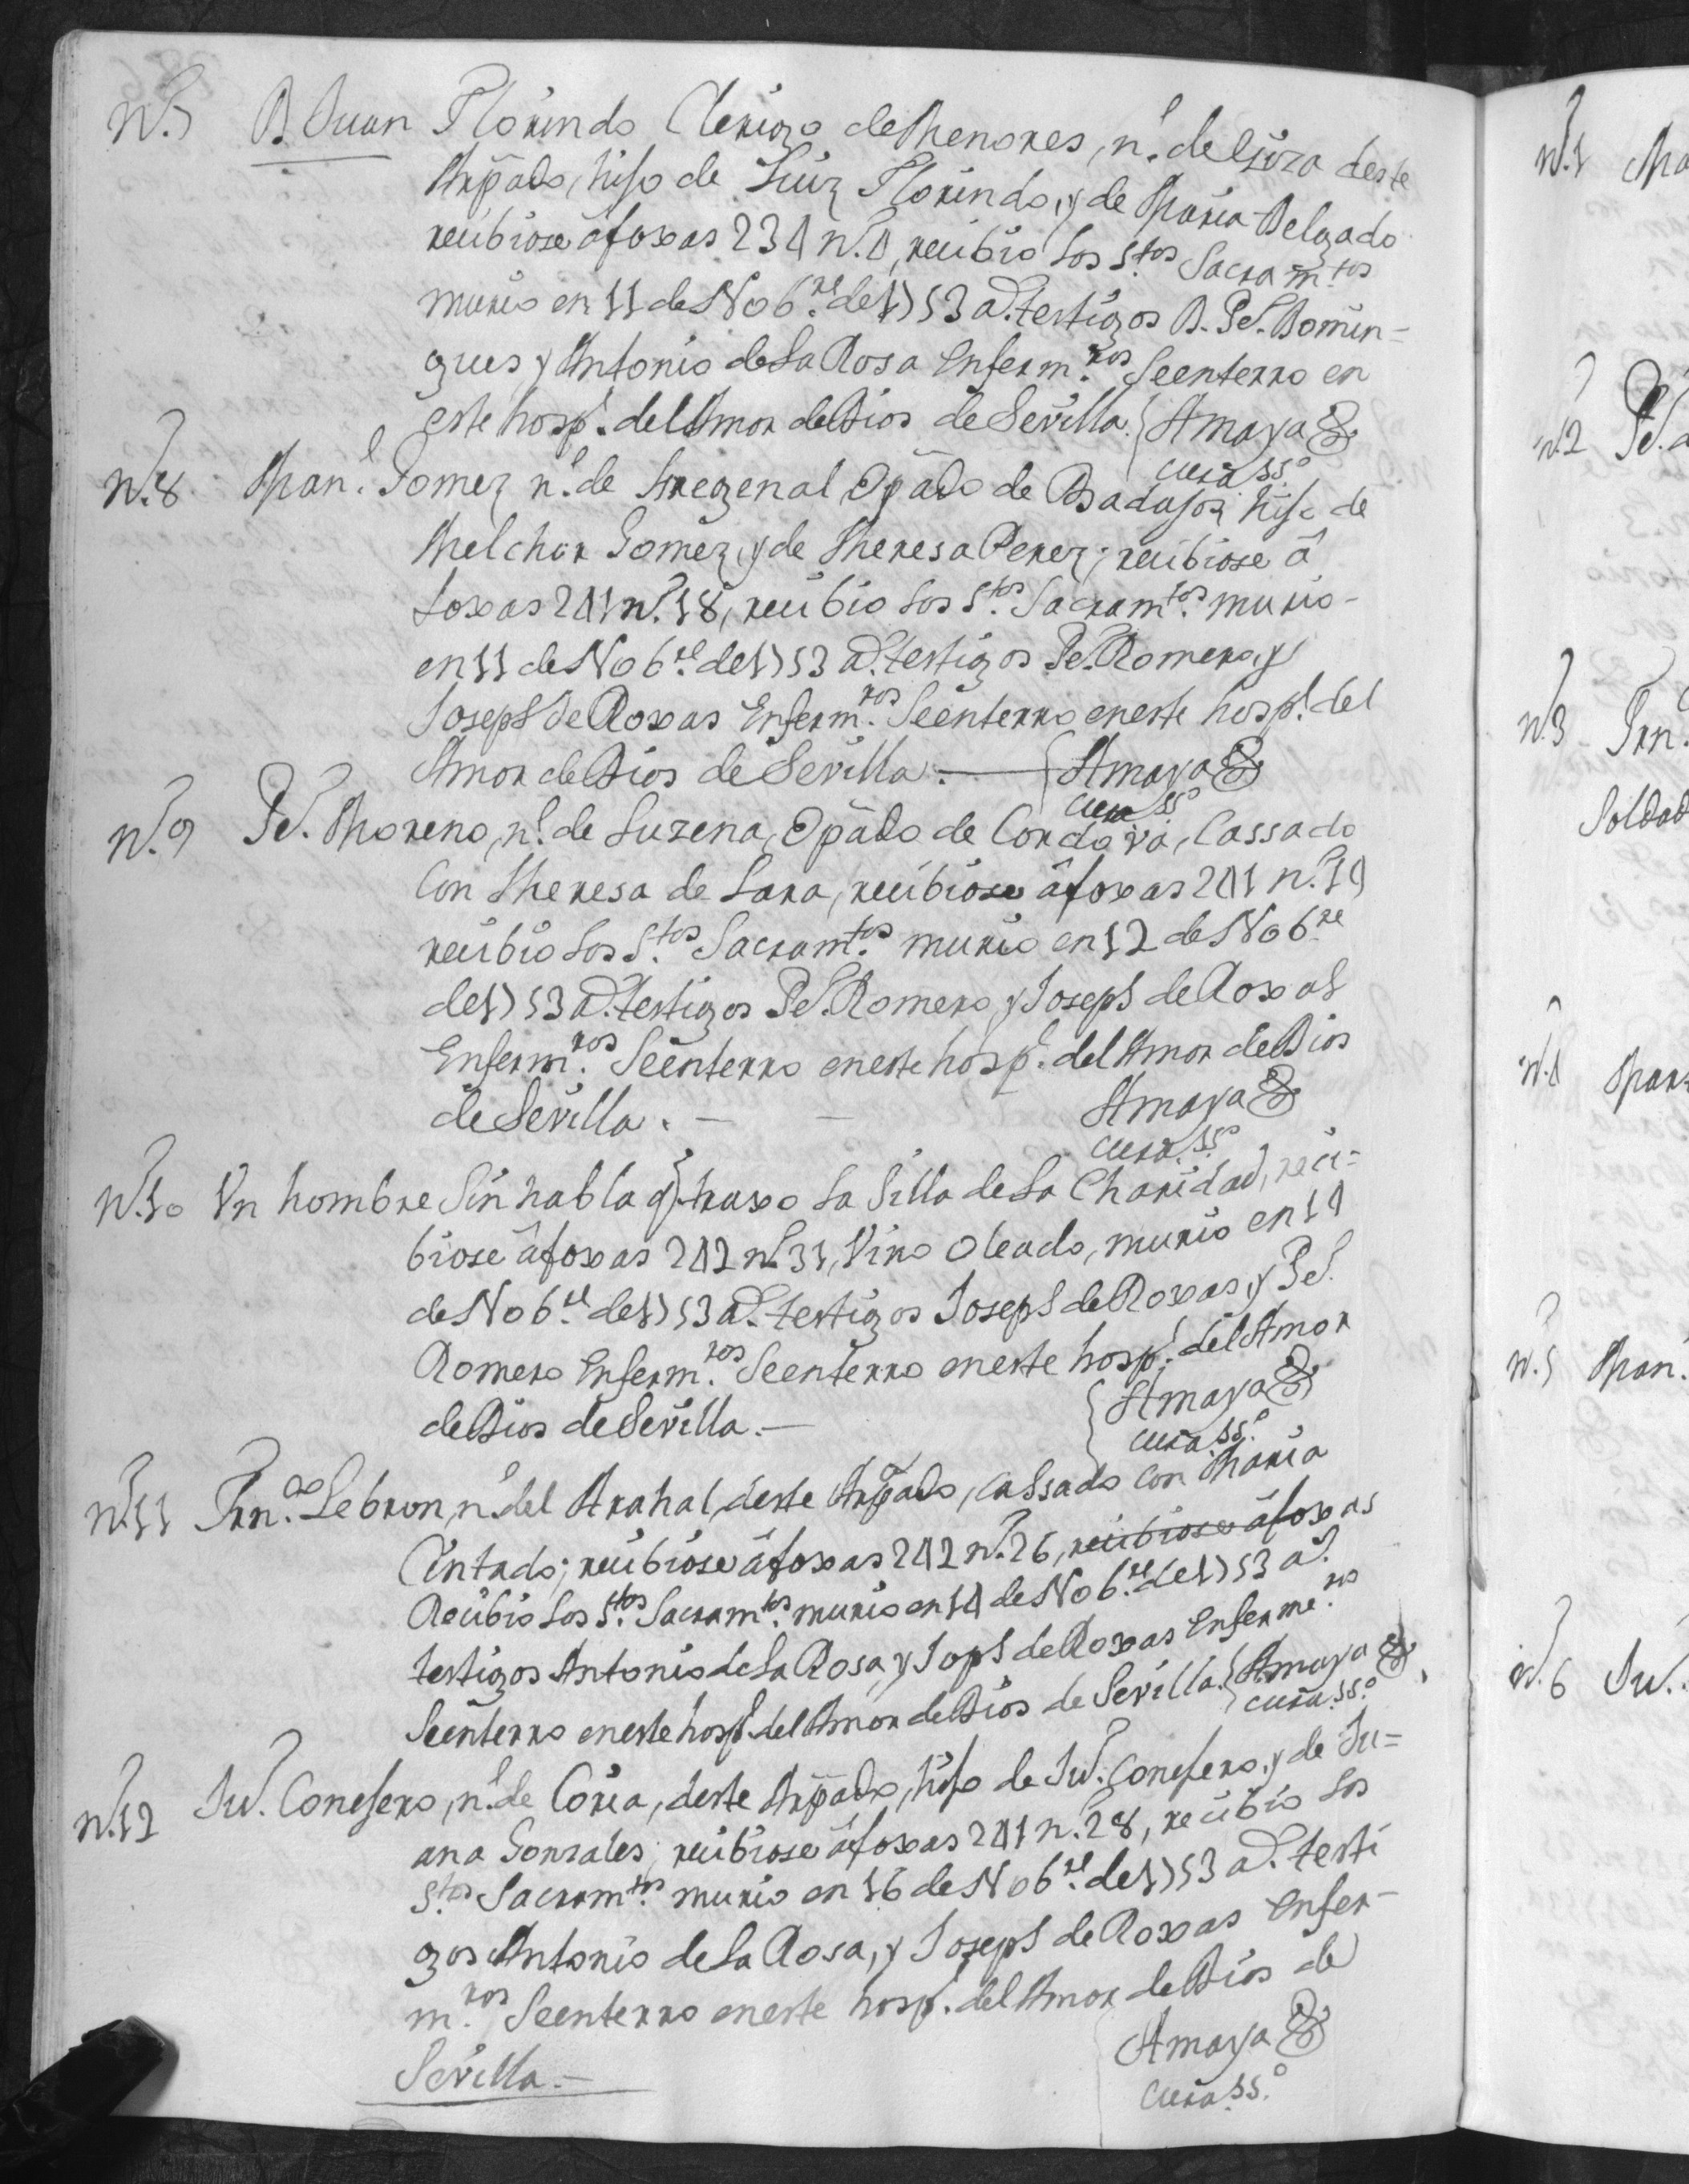 N.º 7 D. Juan Florindo Clerigo de Menores, n.l de Ezixa deste
Arpãdo, hijo de Luiz Florindo, y de Maria Delgado
recibiose â foxas 234 n.º 4, recibio los S.tos Sacramtos
murio en 11 de Nob.re de 1753 a.s testigos D. P.º Domin-
gues y Antonio de La Rosa Enferm.ros Seenterro en
este hosp.l del Amor de Dios de Sevilla. Amaya
Cura SS.º
N.º 8 Man.l Gomez n.l de Fregenal Opãdo de Badajoz hijo de
Melchor Gomez, y de Theresa Perez; recibiose â
foxas 241 n.º 18, recibio los S.tos Sacramtos. murio-
en 11 de Nob.re de 1753 a.s testigos P.º Romero, y
Joseph de Roxas Enferm.ros Seenterro en este hosp.l del
Amor de Dios de Sevilla. Amaya
Cura SS.º
N.º 9 P.º Moreno, n.l de Luzena, Opãdo de Cordova, Cassado
Con Theresa de Lara, recibiose â foxas 241 n.º 19
recibio los S.tos Sacramtos murio en 12 de Nob.re
de 1753 a.s testigos P.º Romero, y Joseph de Roxas
Enferm.ros Seenterro en este hosp.l del Amor de Dios
de Sevilla. - - Amaya
Cura SS.º
N.º 10 Vn hombre Sin habla q. traxo La Silla de La Charidad, reci=
biose â foxas 242 n.º 31, Vino Oleado, murio en 14
de Nob.re de 1753 a.s testigos Joseph de Roxas, y P.º
Romero Enferm.ros Seenterro en este hosp.l del Amor
de Dios de Sevilla.- Amaya
Cura SS.º
N.º 11 Frn.do Lebron, n.l del Arahal, deste Arpãdo, Cassado Con Maria
Cintado; recibiose â foxas 242 n.º 26, recibiose â foxas
Recibio los S.tos Sacramtos. murio en 14 de Nob.re de 1753 a.s
testigos Antonio de La Rosa, y Joph de Roxas Enferme.ros
Seenterro en este hosp.l del Amor de Dios de Sevilla. Amaya
Cura SS.º
N.º 12 Ju.º Conejero, n.l de Coria, deste Arpãdo, hijo de Ju.º Conejero, y de Ju=
ana Gonzales; recibiose â foxas 241 n.º 28, recibio los
S.tos Sacramtos. murio en 16 de Nob.re de 1753 a.s testi
gos Antonio de La Rosa, y Joseph de Roxas Enfer-
m.ros Seenterro en este hosp.l del Amor de Dios de
Sevilla.- Amaya
Cura SS.º
N.º 1
N.º 2 P.º
N.º 3 Frn.
Soldad
N.º 4
N.º 5 Man.
N.º 6 Ju.